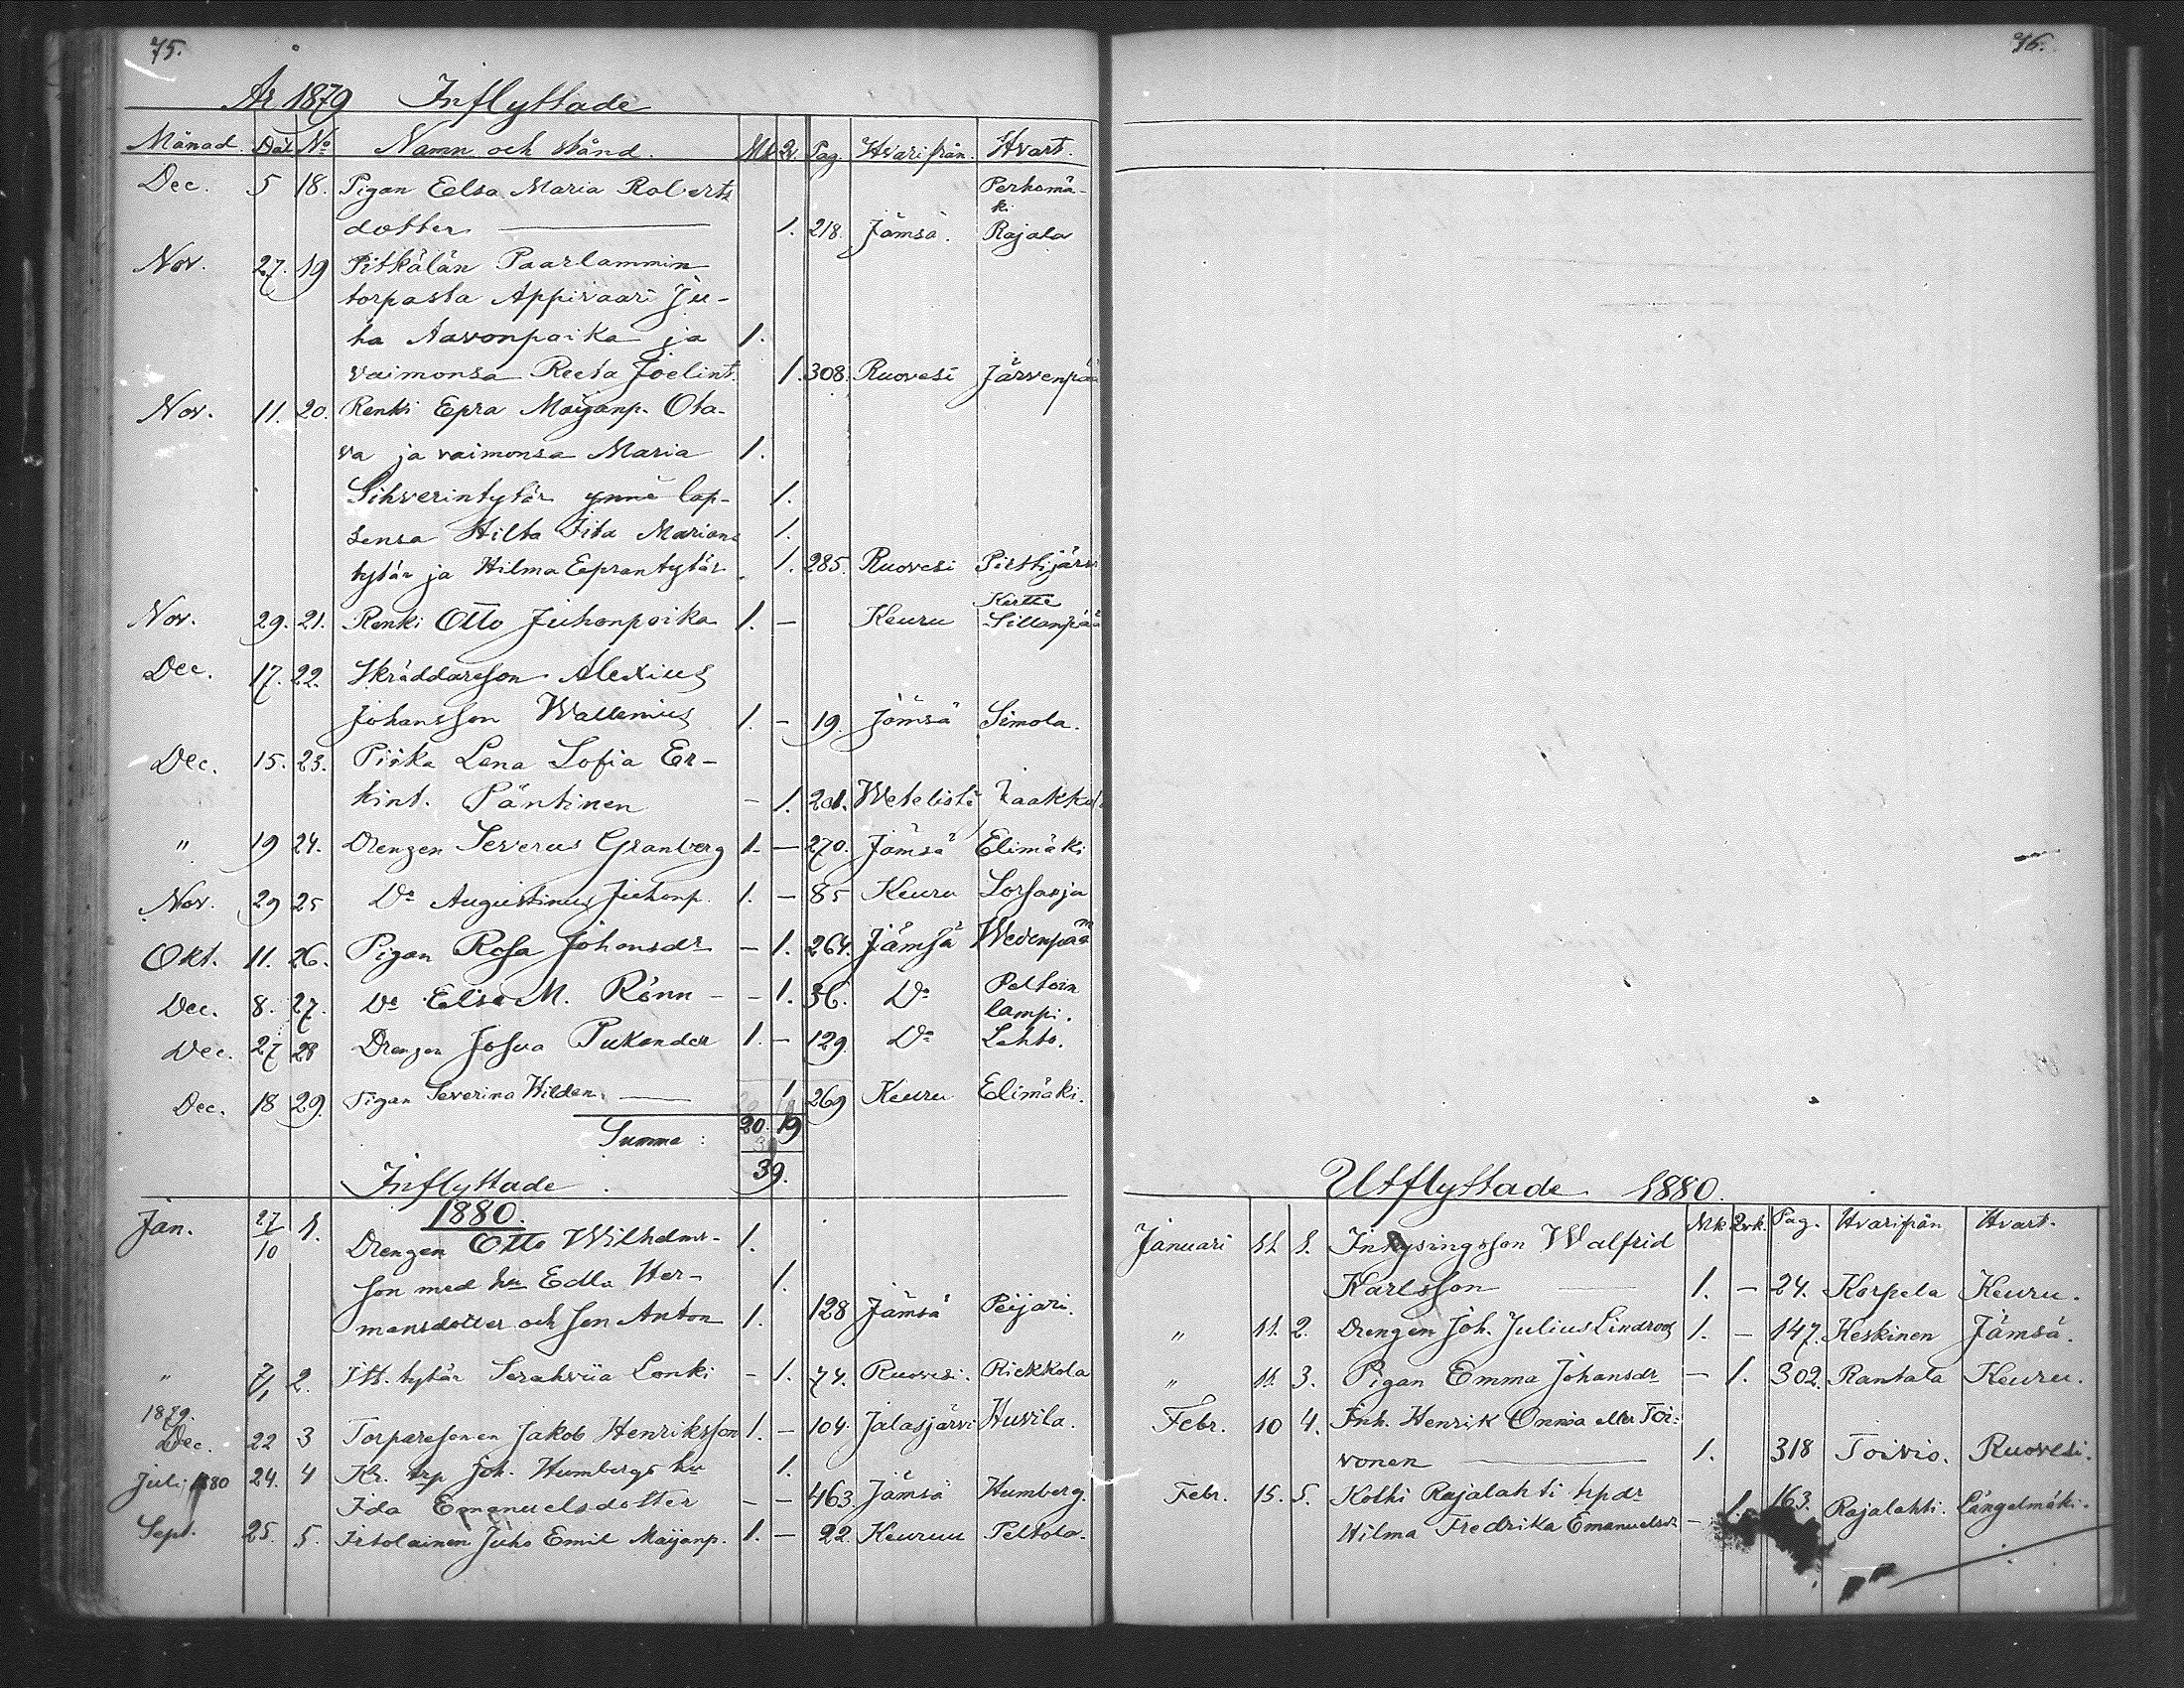 75.
År 1879 Inflyttade
Månad. Dat. No Namn och stånd. Mk Qv. Pag. Hvarifrån. Hvart.
Dec. 5 18. Pigan Eelsa Maria Roberts Perhomä-
ki
dotter 1. 218. Jämsä. Rajala
Nov. 27. 19 Pitkälän Paarlammin
torpasta Appivaari Ju-
ha Aavonpoika ja 1.
vaimonsa Reeta Joelint. 1. 308. Ruovesi Järvenpää
Nov. 11. 20. Renki Epra Maijanp. Ota-
va ja vaimonsa Maria 1.
Sihverintytär ynnä lap- 1.
sensa Hilta Iita Marian 1.
tytär ja Hilma Eprantytär 1. 285. Ruovesi Pirttijärvi
Nov. 29. 21. Renki Otto Juhonpoika 1. - Keuru Kertte
Sillanpää
Dec. 17. 22. Skräddaresson Alexius
Johansson Wallenius 1. - 19. Jämsä Simola.
Dec. 15. 23. Piika Lena Sofia Er-
kint. Päntinen - 1. 201. Weteli Jaakkola
" 19 24. Drengen Severus Granberg 1. - 270. Jämsä Elimäki
Nov. 29 25 Do Augustinus Juhonp. 1. - 85 Keuru Lorsasja
Okt. 11. 26. Pigan Rosa Johansdr - 1. 264. Jämsä Wedenpää
Dec. 8. 27. Do Elsa M. Rönn - - 1. 36. Do Peltoin
lampi.
Dec. 27 28 Drengen Josua Pukander 1. - 129. Do Lehto.
Dec. 18 29. Pigan Severina Hilden. 1 269 Keuru Elimäki.
Summa: 20. 19
39.
Inflyttade
1880.
Jan. 27/10 1. Drengen Otto Wilhelms- 1.
son med hu Edla Her- 1.
mansdotter och son Anton 1. 128 Jämsä Peijari.
" 7/1 2. Itt. tytär Serahviia Lonki - 1. 74. Ruovesi. Riekkola
1879.
Dec. 22 3 Torparesonen Jakob Henriksson 1. - 104. Jalasjärvi Huvila.
Juli 1880 24. 4 Kr. trp Joh. Humbergs hu 1.
Ida Emanuelsdotter - - 463. Jämsä Humberg.
Sept. 25. 5. Irtolainen Juho Emil Maijanp. 1. - 22. Keuruu Peltola.
76.
Utflyttade 1880.
Mk Qvk. Pag. Hvarifrån Hvart.
Januari 11 1. Inhysingsson Walfrid
Karlsson 1. - 24. Korpela Keuru.
" 11. 2. Drengen Joh. Julius Lindroos 1. - 147. Keskinen Jämsä.
" 11. 3. Pigan Emma Johansdr - 1. 302. Rantala Keuru.
Febr. 10 4. Inh. Henrik Onnia eller Toi-
vonen 1. 318 Toivio. Ruovesi.
Febr. 15. 5. Kolhi Rajalahti trpdr
Hilma Fredrika Emanuelsdr - 1. 163. Rajalahti. Längelmäki.